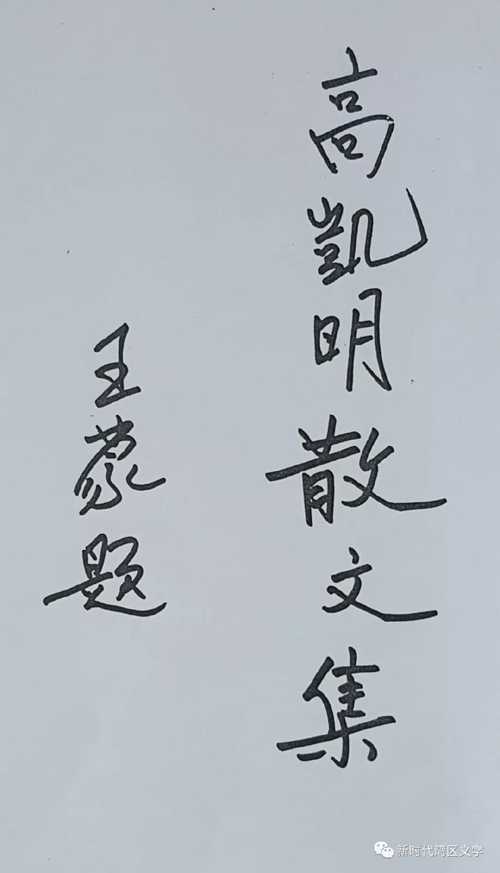 高凱明散文集
王蒙题
新时代湾区文学